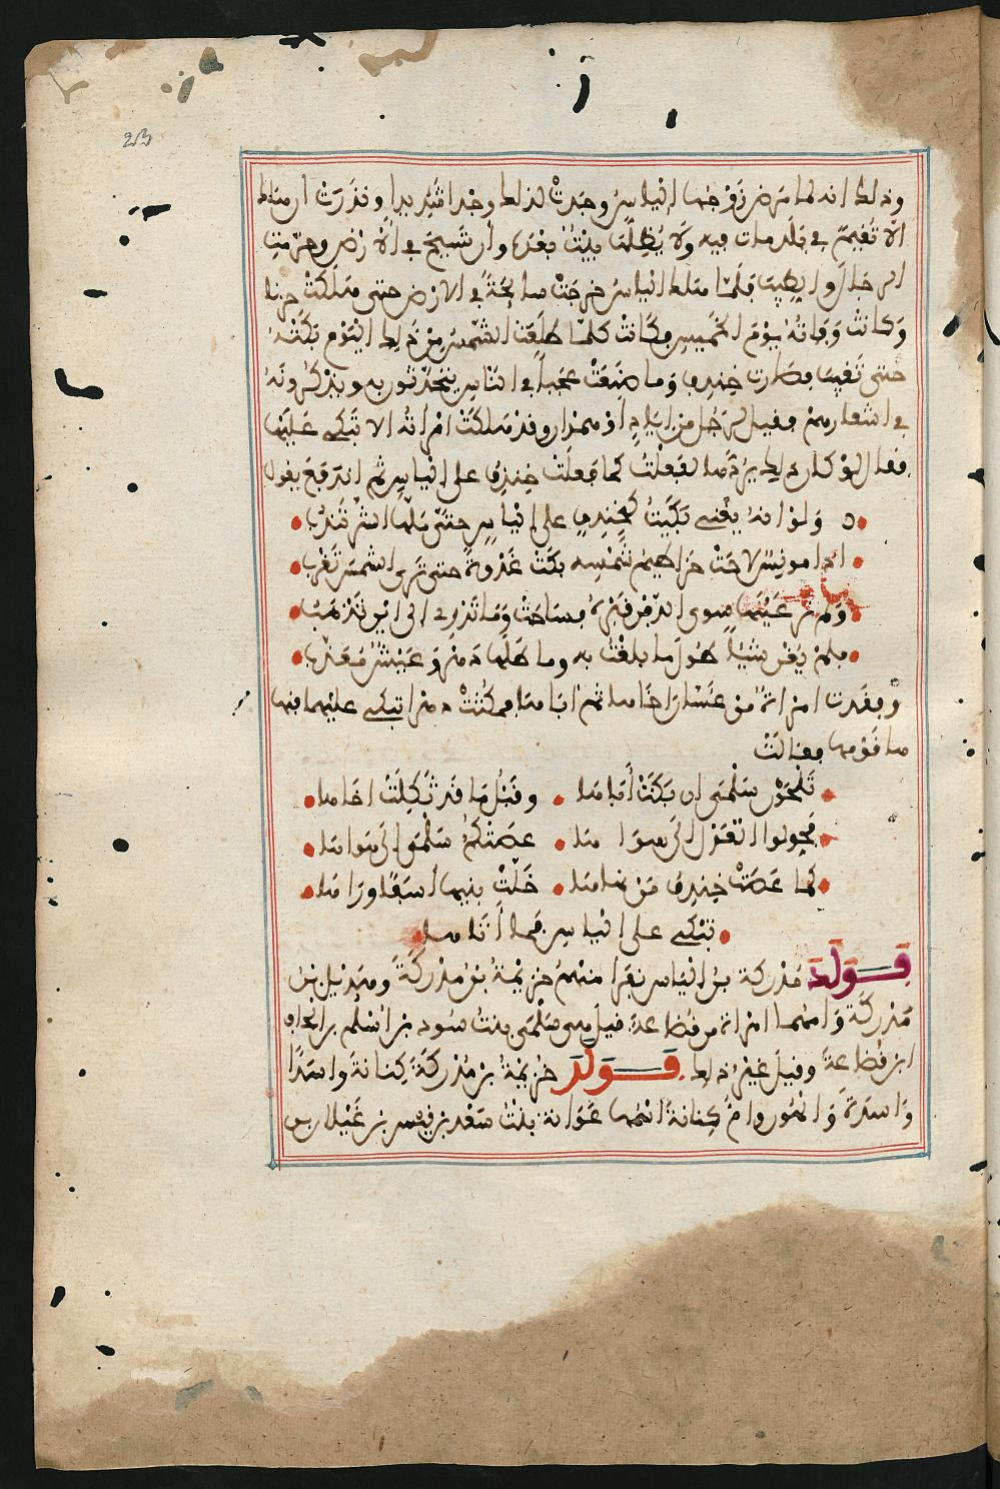 23
وذلك انه لما مرض زوجها الياس وجدت لذلك وجدا شديدا ونذرت ان هلك
الا تقيم في بلد مات فيه ولا يظلها بيت بعده وان تسيح في الارض وحرمت
الرجال والطيب فلما هلك الياس خرجت سايحة في الارض حتى هلكت حزنا
وكانت وفاته يوم الخميس فكانت كلما طلعت الشمس من ذلك اليوم بكته
حتى تغيب فصارت خندف وما صنعت عجبا في الناس يتحدثون به ويذكرونه
في اشعارهم فقيل لرجل من اياد او همدان وقد هلكت امراته الا تبكي عليها
فقال لو كان ذلك يردها لفعلت كما فعلت خندف على الياس ثم اندفع يقول
ولو انه يغني بكيت كخندف على الياس حتى ملها الشر تندب
اذا مونس لاحت خراطيم شمسه بكت غدوة حتى ترى الشمس تغرب
ولم تر عينها سوى الدفن قبره فساحت وما تدري الى اين تذهب
فلم يغن شيئا طول ما بلغت به وما طلها دهر وعيش معذب
وفقدت امراة من غسان اخاها ثم اباها فمكثت دهرا تبكي عليهما فنها
ها قومها فقالت
تلحون سلمى ان بكت اباها وقبل ما قد ثكلت اخاها
فحولوا العذل الى سواها عصتكم سلمى الى هواها
كما عصت خندف من نهاها خلت بنيها اسفا وراها
تبكي على الياس فما اتاها
فولد مدركة بن الياس نفرا منهم خزيمة بن مدركة وهذيل بن
مدركة وامهما امراة من قضاعة قيل هي سلمى بنت سود بن اسلم بن الحاف
ابن قضاعة وقيل غير ذلك فولد خزيمة بن مدركة كنانة واسدا
واسدة والهون وام كنانة امها عوانة بنت سعد بن قيس بن غيلان بن